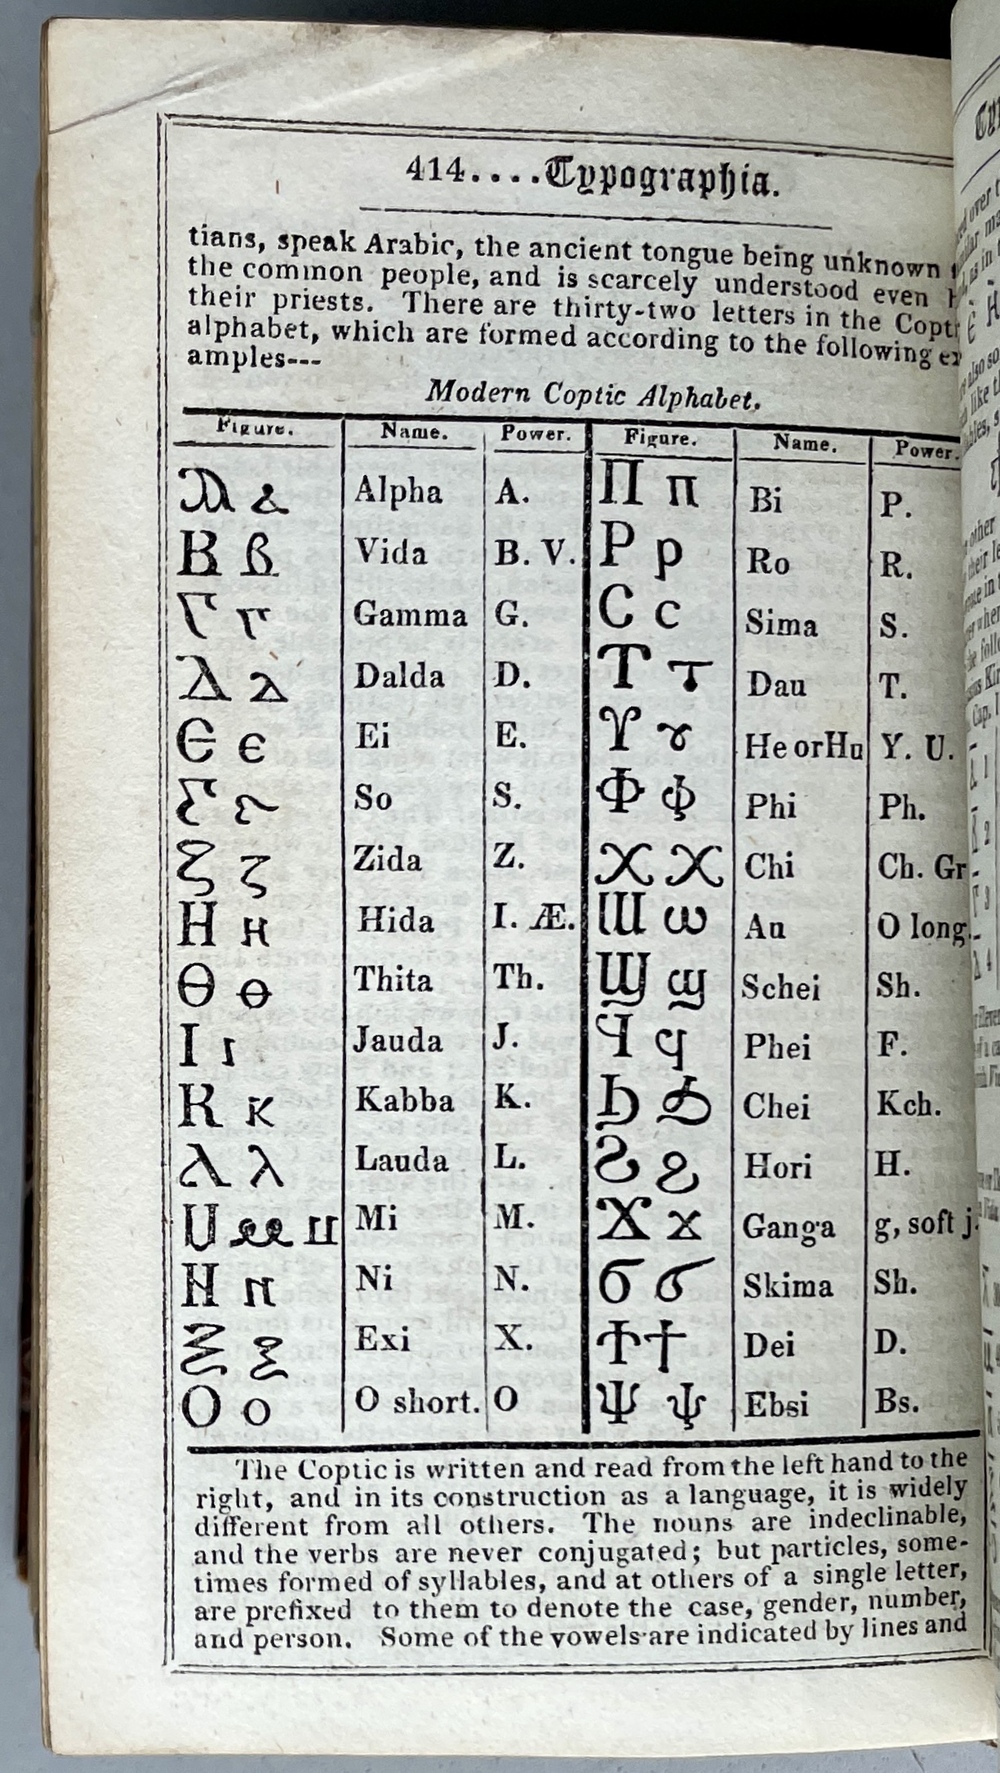 414....Typographia.
tians, speak Arabic, the ancient tongue being unknown
the common people, and is scarcely understood even
their priests. There are thirty-two letters in the
alphabet, which are formed according to the following
amples---
Modern Coptic Alphabet.
Figure. Name. Power. Figure. Name. Power.
Ⲁ ⲁ Alpha A. Ⲡ ⲡ Bi P.
Ⲃ ⲃ Vida B. V. Ⲣ ⲣ Ro R.
Ⲅ ⲅ Gamma G. Ⲥ ⲥ Sima S.
Ⲇ ⲇ Dalda D. Ⲧ ⲧ Dau T.
Ⲉ ⲉ Ei E. Ⲩ ⲩ He or Hu Y. U.
Ⲋ ⲋ So S. Ⲫ ⲫ Phi Ph.
Ⲍ ⲍ Zida Z. Ⲭ ⲭ Chi Ch. Gr
Ⲏ ⲏ Hida I. Æ. Ⲱ ⲱ Au O long.
Ⲑ ⲑ Thita Th. Ϣ ϣ Schei Sh.
Ⲓ ⲓ Jauda J. Ϥ ϥ Phei F.
Ⲕ ⲕ Kabba K. Ϧ ϧ Chei Kch.
Ⲗ ⲗ Lauda L. Ϩ ϩ Hori H.
Ⲙ ⲙ ⲙ Mi M. Ϫ ϫ Ganga g, soft j.
Ⲛ ⲛ Ni N. Ϭ ϭ Skima Sh.
Ⲝ ⲝ Exi X. Ϯ ϯ Dei D.
Ⲟ ⲟ O short. O Ⲯ ⲯ Ebsi Bs.
The Coptic is written and read from the left hand to the
right, and in its construction as a language, it is widely
different from all others. The nouns are indeclinable,
and the verbs are never conjugated; but particles, some-
times formed of syllables, and at others of a single letter,
are prefixed to them to denote the case, gender, number,
and person. Some of the vowels are indicated by lines and